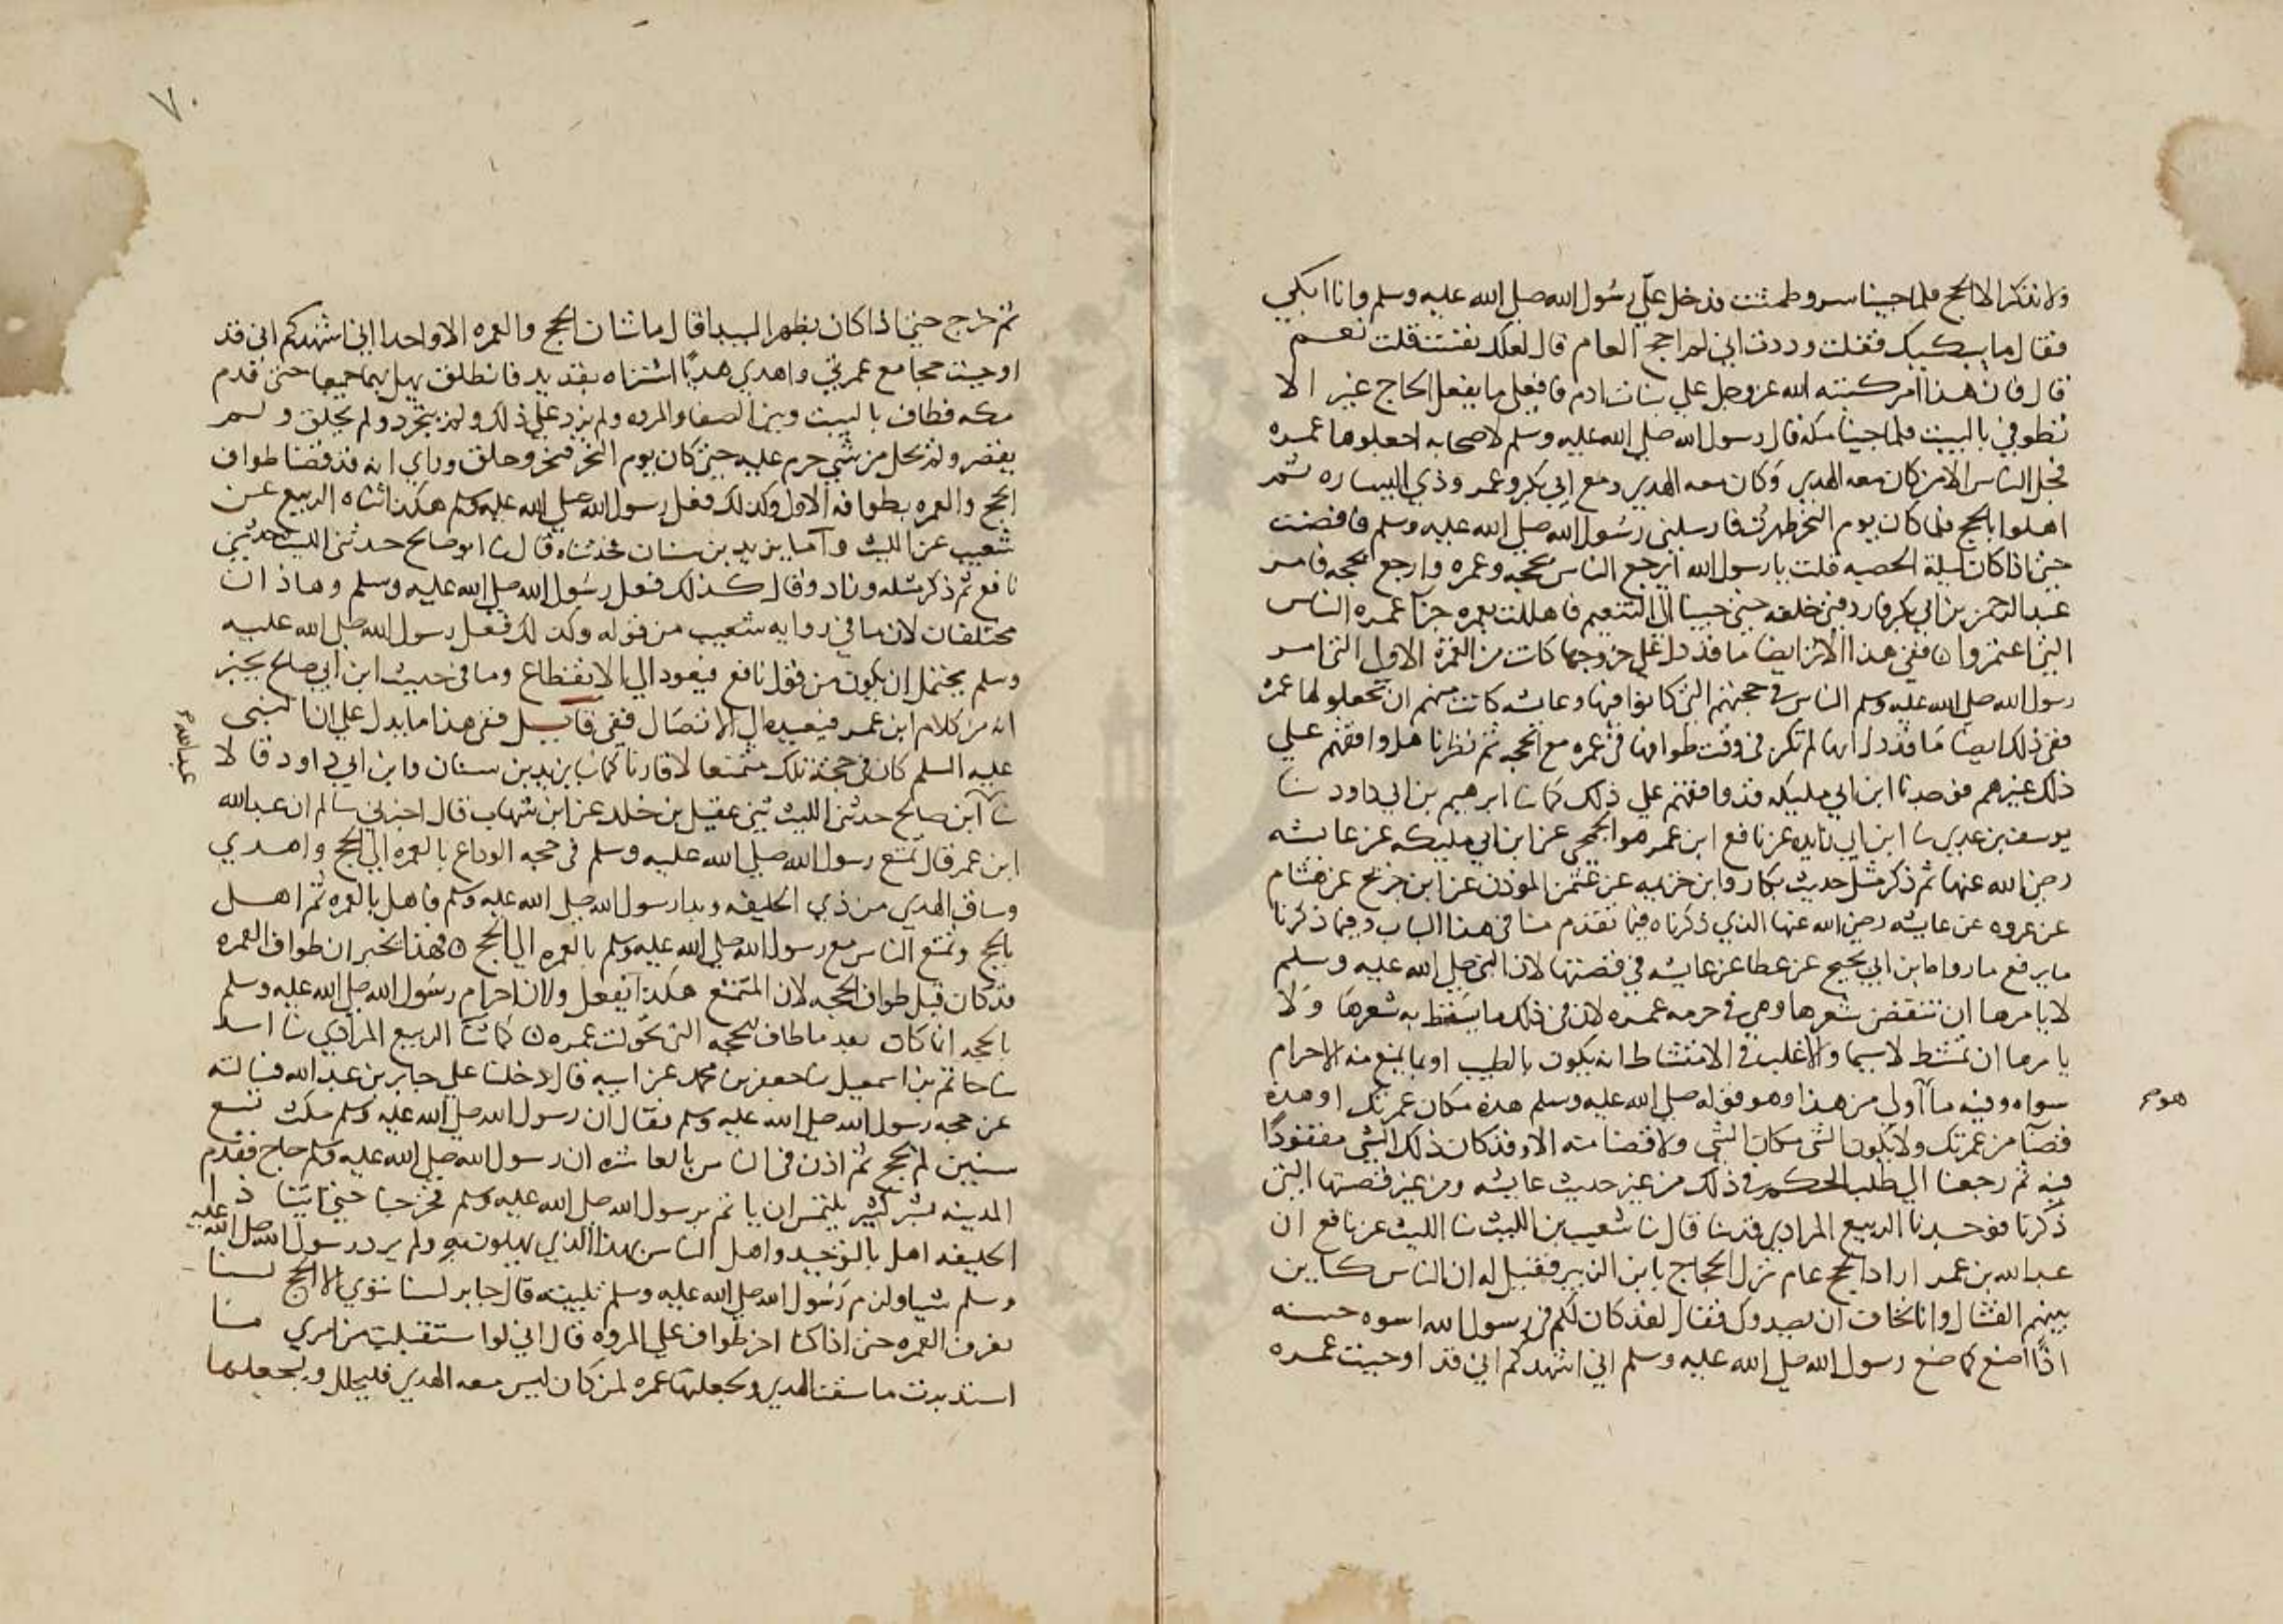 ولا نذكر الا الحج فلما جينا سرو طمثت فدخل علي رسول الله صلى الله عليه وسلم وانا ابكي
فقال ما يبكيك فقلت وددت اني لم احج العام قال لعلك نفست قلت نعم
قال فان هذا امر كتبه الله عز وجل على بنات ادم فافعلي ما يفعل الحاج غير الا
تطوفي بالبيت فلما جينا مكه قال رسول الله صلى الله عليه وسلم لاصحابه اجعلوها عمره
فحل الناس الا من كان معه الهدي وكان معه الهدي ومع ابي بكر وعمر وذي اليساره ثم
اهلوا بالحج فلما كان يوم النحر طهرت فارسلني رسول الله صلى الله عليه وسلم فافضت
حتى اذا كان ليلة الحصبه قلت يا رسول الله ايرجع الناس بحجه وعمره وارجع بحجه فامر
عبد الرحمن بن ابي بكر فاردفني خلفه حتى جينا الى التنعيم فاهللت بعمره جزآ عمره الناس
التي اعتمروا ه ففي هذا الاثر ايضا ما قد دل على خروجها كان من العمرة الاولى التي امر
رسول الله صلى الله عليه وسلم الناس في حجتهم التي كانوا فيها وعايشه كانت منهم ان يجعلوها عمره
ففي ذلك ايضا ما قد دل انها لم تكن في وقت طوافها في عمره مع الحجه ثم نظرنا هل وافقهم على
ذلك غيرهم فوجدنا ابن ابي مليكه قد وافقهم على ذلك كما نا ابرهيم بن ابي داود نا
يوسف بن عدي نا ابن ابي زايده عن نافع ابن عمر هو الجمحي عن ابن ابي مليكه عن عايشه
رضي الله عنها ثم ذكر مثل حديث بكار وابن خزيمه عن عثمن الموذن عن ابن جريج عن هشام
عن عروه عن عايشه رضي الله عنها الذي ذكرناه فيما تقدم منا في هذا الباب وفيما ذكرنا
ما يرفع ما رواه ابن ابي نجيح عن عطا عن عايشه في قصتها لان النبي صلى الله عليه وسلم
لا يامرها ان تنقض شعرها وهي في حرمه عمره لان في ذلك ما يسقط به شعرها ولا
يامرها ان تمتشط لا سيما والاغلب في الامتشاط انه يكون بالطيب او بما يمنع منه الاحرام
سواه وفيه ما اولى من هذا وهو قوله صلى الله عليه وسلم هذه مكان عمرتك او هذه
هو صح
قضآ من عمرتك ولا يكون الشي مكان الشي ولا قضا منه الا وقد كان ذلك الشي مفقودًا
فيه ثم رجعنا الى طلب الحكم في ذلك من غير حديث عايشه ومن غير قصتها التي
ذكرنا فوجدنا الربيع المرادي قد نا قال نا شعيب بن الليث نا الليث عن نافع ان
عبد الله بن عمر اراد الحج عام نزل الحجاج بابن الزبير فقيل له ان الناس كاين
بينهم القتال وانا نخاف ان يصدوك فقال لقد كان لكم في رسول الله اسوه حسنه
اذًا اصنع كما صنع رسول الله صلى الله عليه وسلم اني اشهدكم اني قد اوجبت عمره
٧٠
ثم خرج حتى اذا كان بظهر البيدا قال ما شان الحج والعمره الا واحدا اني اشهدكم اني قد
اوجبت حجا مع عمرتي واهدى هديًا اشتراه بقديد فانطلق يهل بهما جميعا حتى قدم
مكه فطاف بالبيت وبين الصفا والمروه ولم يزد على ذلك ولم يتجرد ولم يحلق ولم
يقصر ولم يحل من شي حرم عليه حتى كان يوم النحر فنحر وحلق وراى انه قد قضا طواف
الحج والعمره بطوافه الاول وكذلك فعل رسول الله صلى الله عليه وسلم هكذا انباه الربيع عن
شعيب عن الليث واما يزيد بن سنان فحدثناه قال نا ابو صالح حدثني الليث حدثني
نافع ثم ذكر مثله وزاد وقال كذلك فعل رسول الله صلى الله عليه وسلم وهاذان
مختلفان لان ما في روايه شعيب من قوله وكذلك فعل رسول الله صلى الله عليه
وسلم يحتمل ان يكون من قول نافع فيعود الى الانقطاع وما في حديث ابن ابي صالح يخبر
انه من كلام ابن عمر فيعيده الى الاتصال ففي قايل ففي هذا ما يدل على ان النبي
عليه السلم كان في حجته تلك متمتعا لا قارنا كما نا يزيد بن سنان وابن ابي داود قالا
عبد الله صح
نا ابن صالح حدثني الليث ثني عقيل بن خلد عن ابن شهاب قال اخبرني سالم ان عبد الله
ابن عمر قال تمتع رسول الله صلى الله عليه وسلم في حجه الوداع بالعمره الى الحج واهدى
وساق الهدي من ذي الحليفه وبدا رسول الله صلى الله عليه وسلم فاهل بالعمره ثم اهل
بالحج وتمتع الناس مع رسول الله صلى الله عليه وسلم بالعمره الى الحج ه فهذا يخبر ان طواف العمره
قد كان قبل طواف الحجه لان المتمتع هكذا يفعل ولان احرام رسول الله صلى الله عليه وسلم
بالحجه انما كان بعد ما طاف للحجه التي تحولت عمره ه كما نا الربيع المرادي نا اسد
نا حاتم بن اسمعيل نا جعفر بن محمد عن ابيه قال دخلنا على جابر بن عبد الله فسالته
عن حجه رسول الله صلى الله عليه وسلم فقال ان رسول الله صلى الله عليه وسلم مكث تسع
سنين لم يحج ثم اذن في الناس بالعاشره ان رسول الله صلى الله عليه وسلم حاج فقدم
المدينه بشر كثير يلتمس ان ياتم برسول الله صلى الله عليه وسلم فخرجنا حتى اتينا ذا
الحليفه اهل بالتوحيد واهل الناس بهذا الذي يهلون به ولم يردد رسول الله صلى الله عليه
وسلم شيا ولزم رسول الله صلى الله عليه وسلم تلبيته قال جابر لسنا ننوي الا الحج لسنا
نعرف العمره حتى اذا كنا اخر طواف على المروه قال اني لو استقبلت من امري ما
استدبرت ما سقت الهدي ولجعلتها عمره فمن كان ليس معه الهدي فليحلل وليجعلها